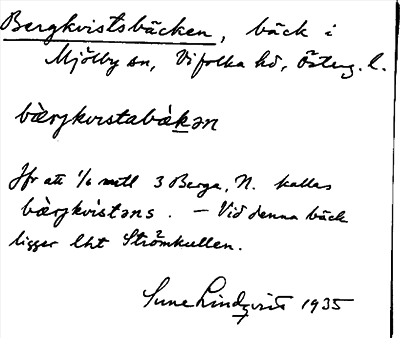 Bergkvistsbäcken, bäck i
Mjölby sn, Vifolka hd, Österg. l.
bàrjkvistabäkən
Jfr att 1/6 mtl 3 Berga, N. kallas
bàrjkvistəns. – Vid denna bäck
ligger lht Strömkullen.
Sune Lindqvist 1935